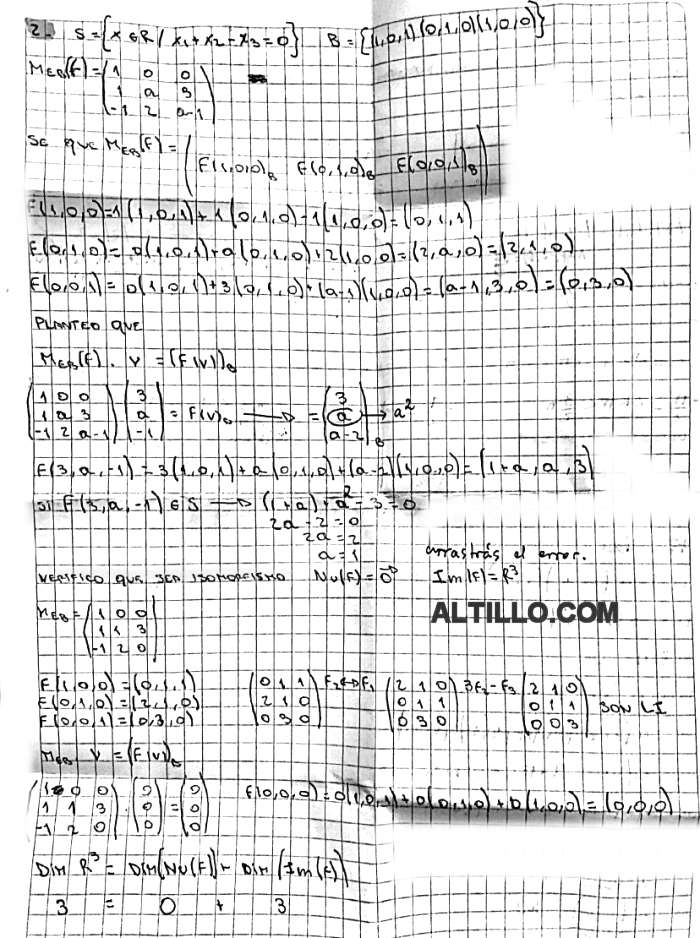 2. S={x ∈ R / x1+x2-x3=0} B={(1,0,1)(0,1,0)(1,0,0)}
MEB(f)=(1 0 0
1 a 3
-1 2 a-1)
SE QUE MEB(F)=(F(1,0,0)B F(0,1,0)B F(0,0,1)B)
F(1,0,0)=1(1,0,1)+1(0,1,0)-1(1,0,0)=(0,1,1)
F(0,1,0)=0(1,0,1)+a(0,1,0)+2(1,0,0)=(2,a,0)=(2,1,0)
F(0,0,1)=0(1,0,1)+3(0,1,0)+(a-1)(1,0,0)=(a-1,3,0)=(0,3,0)
PLANTEO QUE
MEB(F). V =(F(V))B
(1 0 0 (3 (3
1 a 3 a = F(V)B → = a → a²
-1 2 a-1) -1) a-2)B
F(3,a,-1)=3(1,0,1)+a(0,1,0)+(a-2)(1,0,0)=(1+a,a,3)
SI F(3,a,-1) ∈ S → (1+a)+a²-3=0
2a-2=0
2a=2
a=1 arrastrás el error.
VERIFICO QUE SEA ISOMORFISMO Nu(F)=0 Im(F)=R³
ALTILLO.COM
MEB=(1 0 0
1 1 3
-1 2 0)
F(1,0,0)=(0,1,1) (0 1 1 F2↔F1 (2 1 0 3F2-F3 (2 1 0
F(0,1,0)=(2,1,0) 2 1 0 0 1 1 0 1 1 SON LI
F(0,0,1)=(0,3,0) 0 3 0) 0 3 0) 0 0 3)
MEB V =(F(V))B
(1 0 0 (0 (0 F(0,0,0)=0(1,0,1)+0(0,1,0)+0(1,0,0)=(0,0,0)
1 1 3 . 0 = 0
-1 2 0) 0) 0)
DIM R³ = DIM(NU(F))+ DIM(Im(F))
3 = 0 + 3